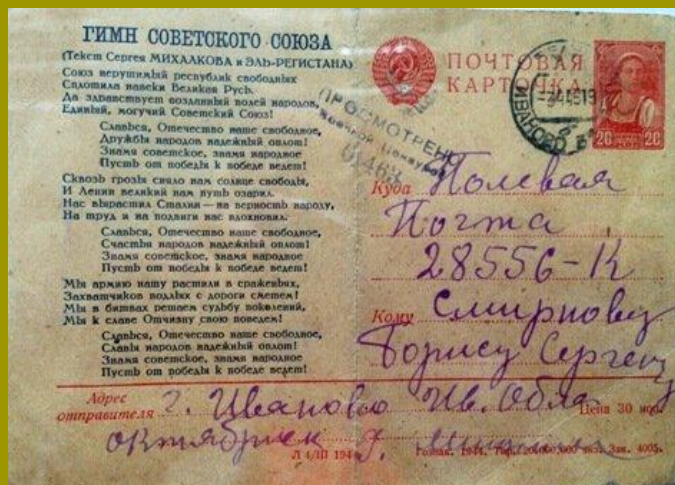 ГИМН СОВЕТСКОГО СОЮЗА
(Текст Сергея МИХАЛКОВА и ЭЛЬ-РЕГИСТАНА)
Союз нерушимый республик свободных
Сплотила навеки Великая Русь.
Да здравствует созданный волей народов,
Единый, могучий Советский Союз!
Славься, Отечество наше свободное,
Дружбы народов надежный оплот!
Знамя советское, знамя народное
Пусть от победы к победе ведет!
Сквозь грозы сияло нам солнце свободы,
И Ленин великий нам путь озарил.
Нас вырастил Сталин — на верность народу,
На труд и на подвиги нас вдохновил.
Славься, Отечество наше свободное,
Счастья народов надежный оплот!
Знамя советское, знамя народное
Пусть от победы к победе ведет!
Мы армию нашу растили в сраженьях,
Захватчиков подлых с дороги сметем!
Мы в битвах решаем судьбу поколений,
Мы к славе Отчизну свою поведем!
Славься, Отечество наше свободное,
Славы народов надежный оплот!
Знамя советское, знамя народное
Пусть от победы к победе ведет!
ПОЧТОВАЯ
КАРТОЧКА
ПРОСМОТРЕНО
Военной Цензурой
ИВАНОВО
20 20
Куда Полевая
Почта
28556-К
Кому Смирнову
Борису Сергеев
Адрес
отправителя г. Иваново Ив. Обл.
Цена 30 коп.
Октябрьск
Л 4/III 194
Гознак. 1944. Зак. 4005.